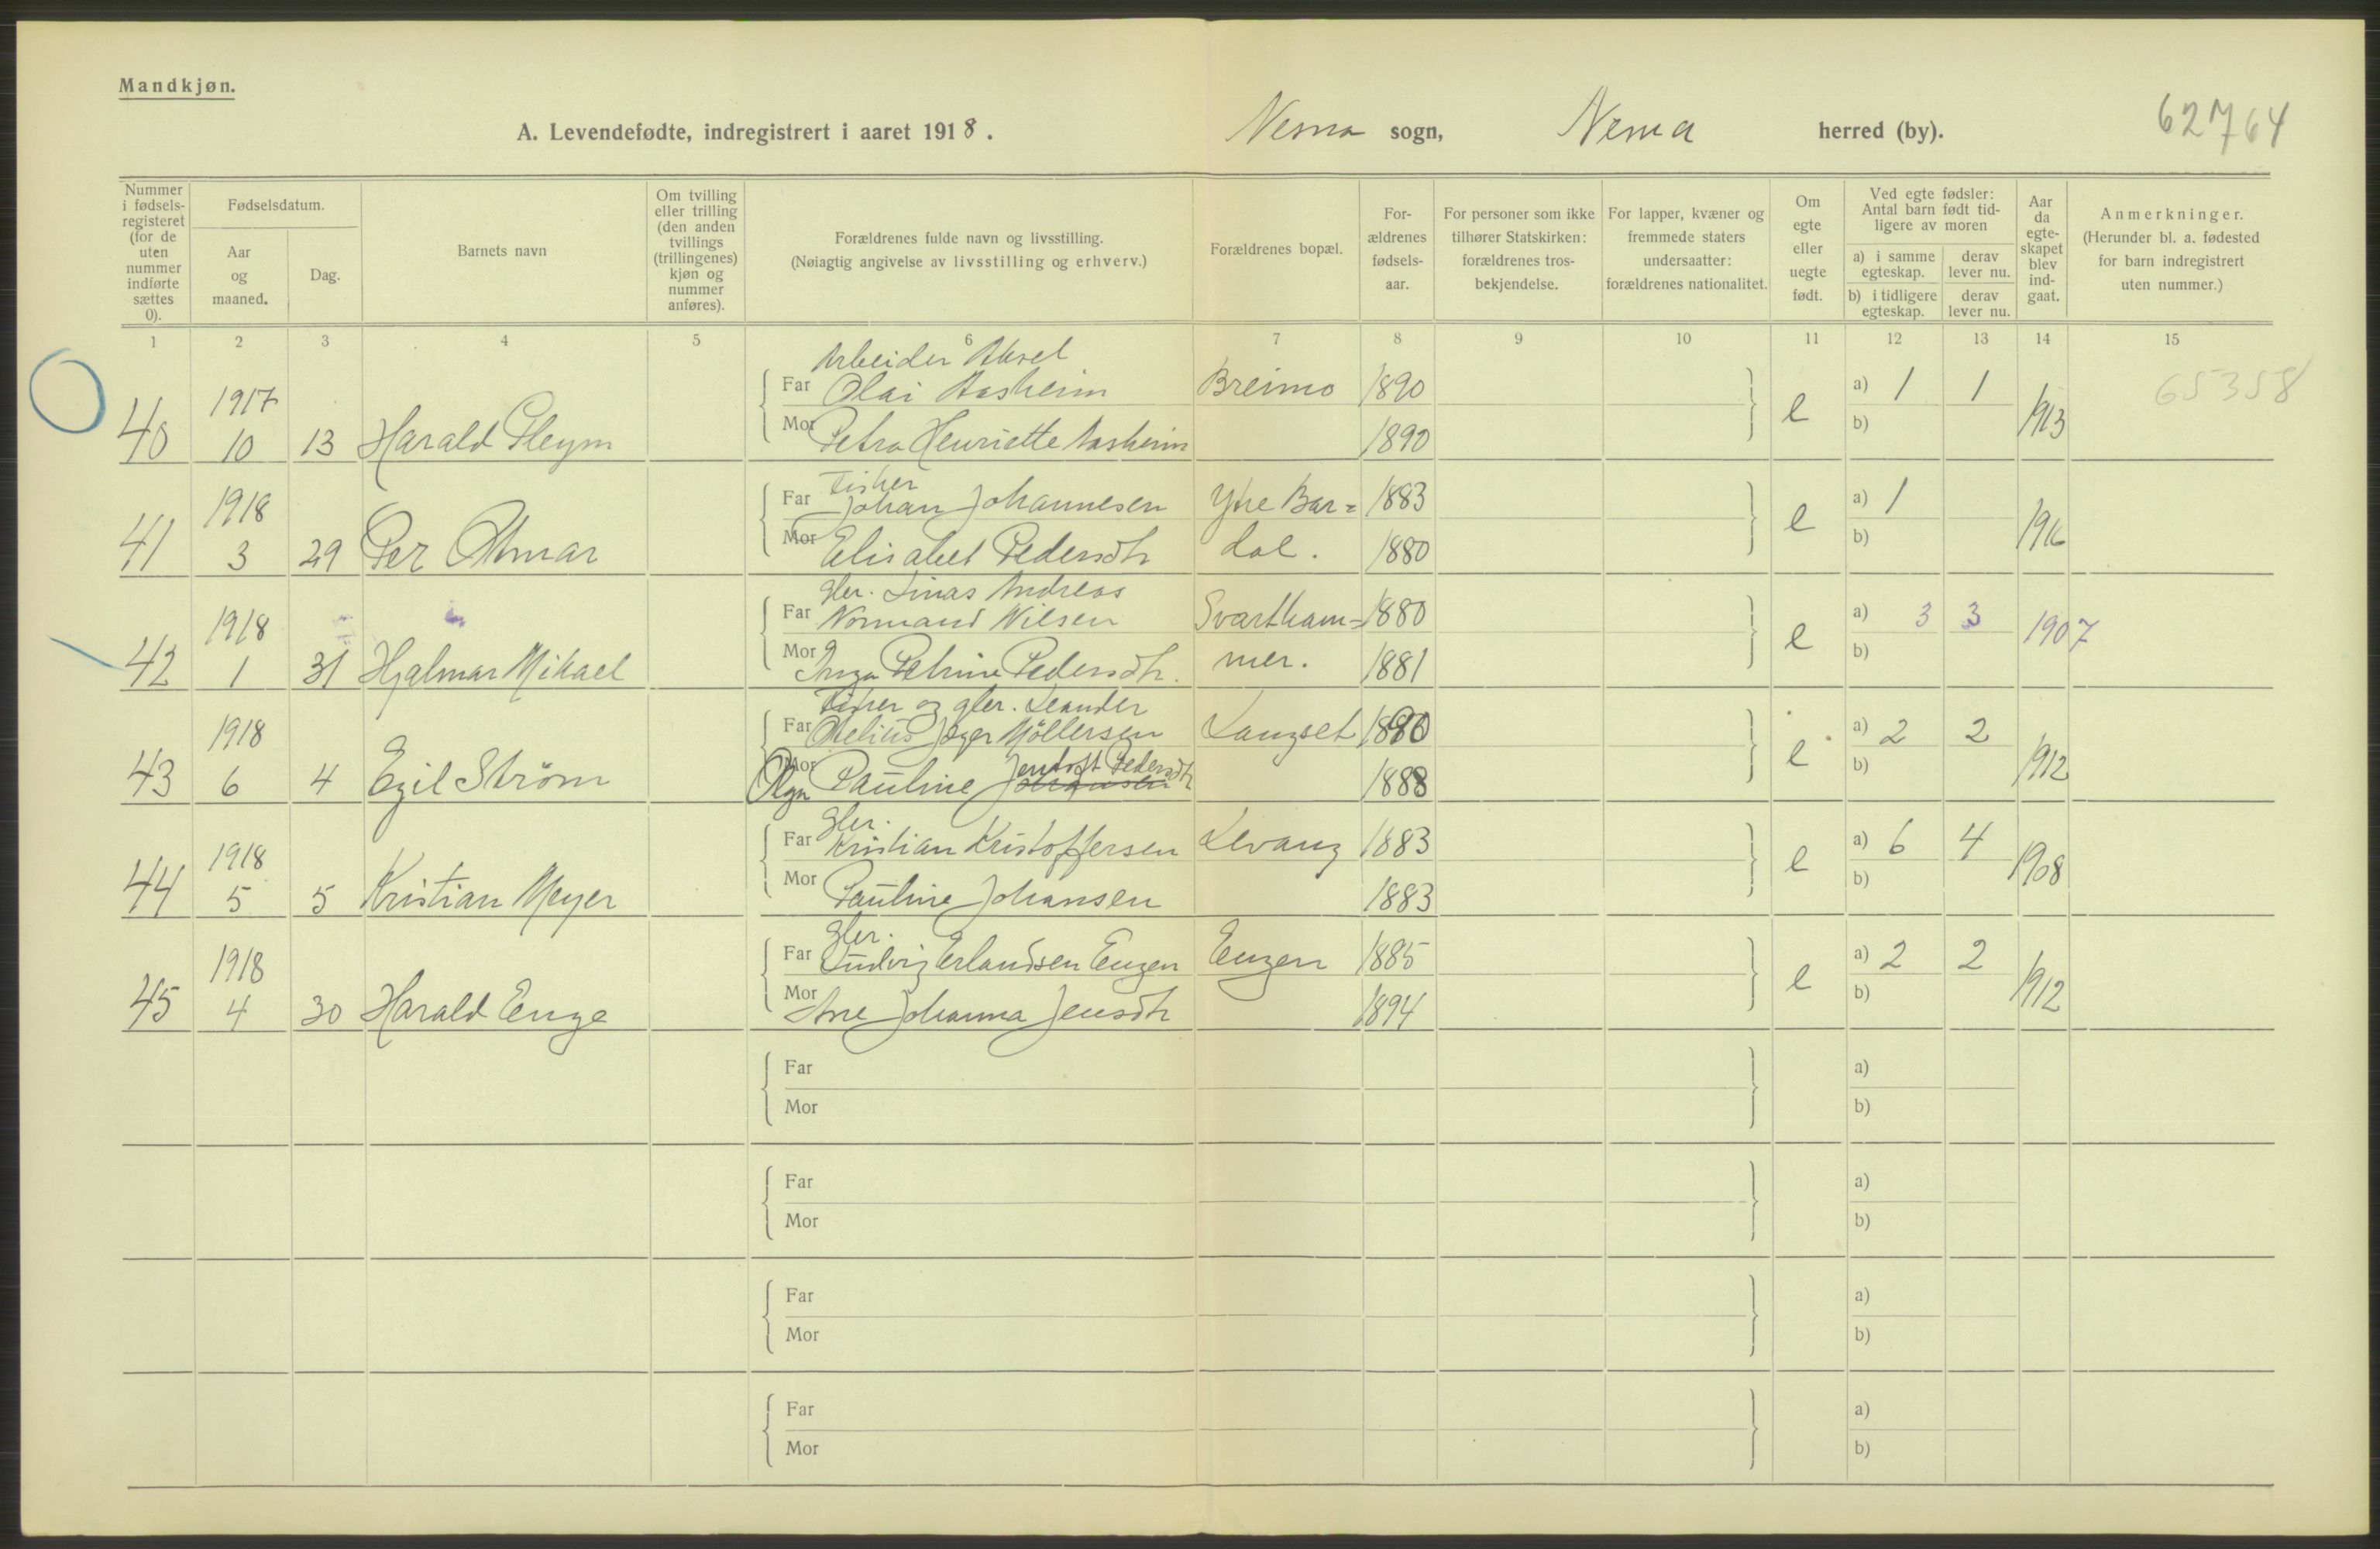 Mandkjøn.
A. Levendefødte, indregistrert i aaret 1918. Nesna sogn, Nesna herred (by). 62764
Nummer i fødsels-registeret (for de uten nummer indførte sættes 0).
Fødselsdatum.
Aar og maaned.
Dag.
Barnets navn
Om tvilling eller trilling (den anden tvillings (trillingenes) kjøn og nummer anføres).
Forældrenes fulde navn og livsstilling.
(Nøiagtig angivelse av livsstilling og erhverv.)
Forældrenes bopæl.
For-ældrenes fødsels-aar.
For personer som ikke tilhører Statskirken: forældrenes tros-bekjendelse.
For lapper, kvæner og fremmede staters undersaatter: forældrenes nationalitet.
Om egte eller uegte født.
Ved egte fødsler: Antal barn født tid-ligere av moren
a) i samme egteskap. derav lever nu.
b) i tidligere egteskap. derav lever nu.
Aar da egte-skapet blev ind-gaat.
Anmerkninger.
(Herunder bl. a. fødested for barn indregistrert uten nummer.)
1 2 3 4 5 6 7 8 9 10 11 12 13 14 15
Arbeider Aksel
1917 Far Olai Aasheim Breimo 1890 a) 1 1 65358
40 10 13 Harald Pleym Mor Petra Henriette Aasheim 1890 e b) 1913
Fisker
1918 Far Johan Johannesen Ytre Bar= 1883 a) 1
41 3 29 Per Otmar Mor Elisabet Pedersdtr dal. 1880 e b) 1916
Gbr. Linas Andreas
1918 Far Normand Nilsen Svartham= 1880 a) 3 3 1907
42 1 31 Hjalmar Mikael Mor Inga Petrine Pedersdtr. mer. 1881 e b)
Fisker og gbr. Leander
1918 Far Otelius Jeger Möllersen Langset 1880 a) 2 2
43 6 4 Egil Strøm Mor Olga Pauline Jentoft Pedersdtr Johansen 1888 e b) 1912
Gbr.
1918 Far Kristian Kristoffersen Levang 1883 a) 6 4
44 5 5 Kristian Meyer Mor Pauline Johansen 1883 e b) 1908
Gbr.
1918 Far Ludvig Erlandsen Engen Engen 1885 a) 2 2
45 4 30 Harald Enge Mor Ane Johanna Jensdtr 1894 e b) 1912
Far a)
Mor b)
Far a)
Mor b)
Far a)
Mor b)
Far a)
Mor b)